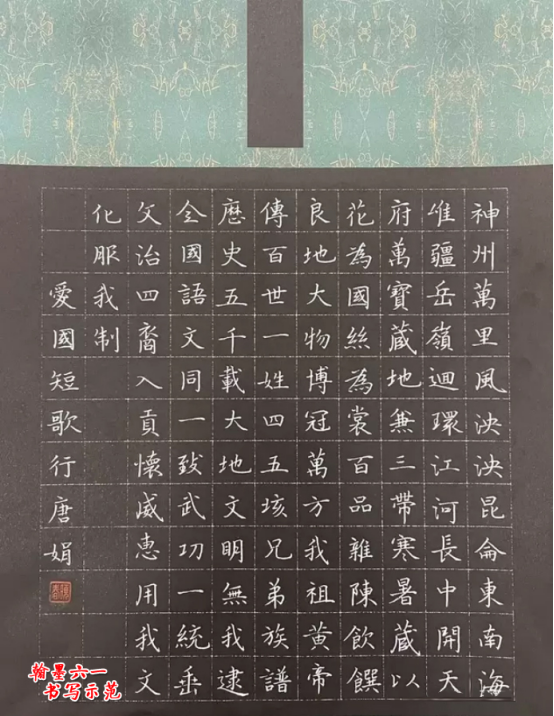 神州萬里風泱泱昆侖東南海
唯疆岳嶺迴環江河長中開天
府萬寶藏地兼三帶寒暑藏以
花為國絲為裳百品雜陳飲饌
良地大物博冠萬方我祖黃帝
傳百世一姓四五垓兄弟族譜
歷史五千載大地文明無我逮
全國語文同一致武功一統垂
文治四裔入貢懷威惠用我文
化服我制
愛國短歌行唐娟
翰墨六一
书写示范